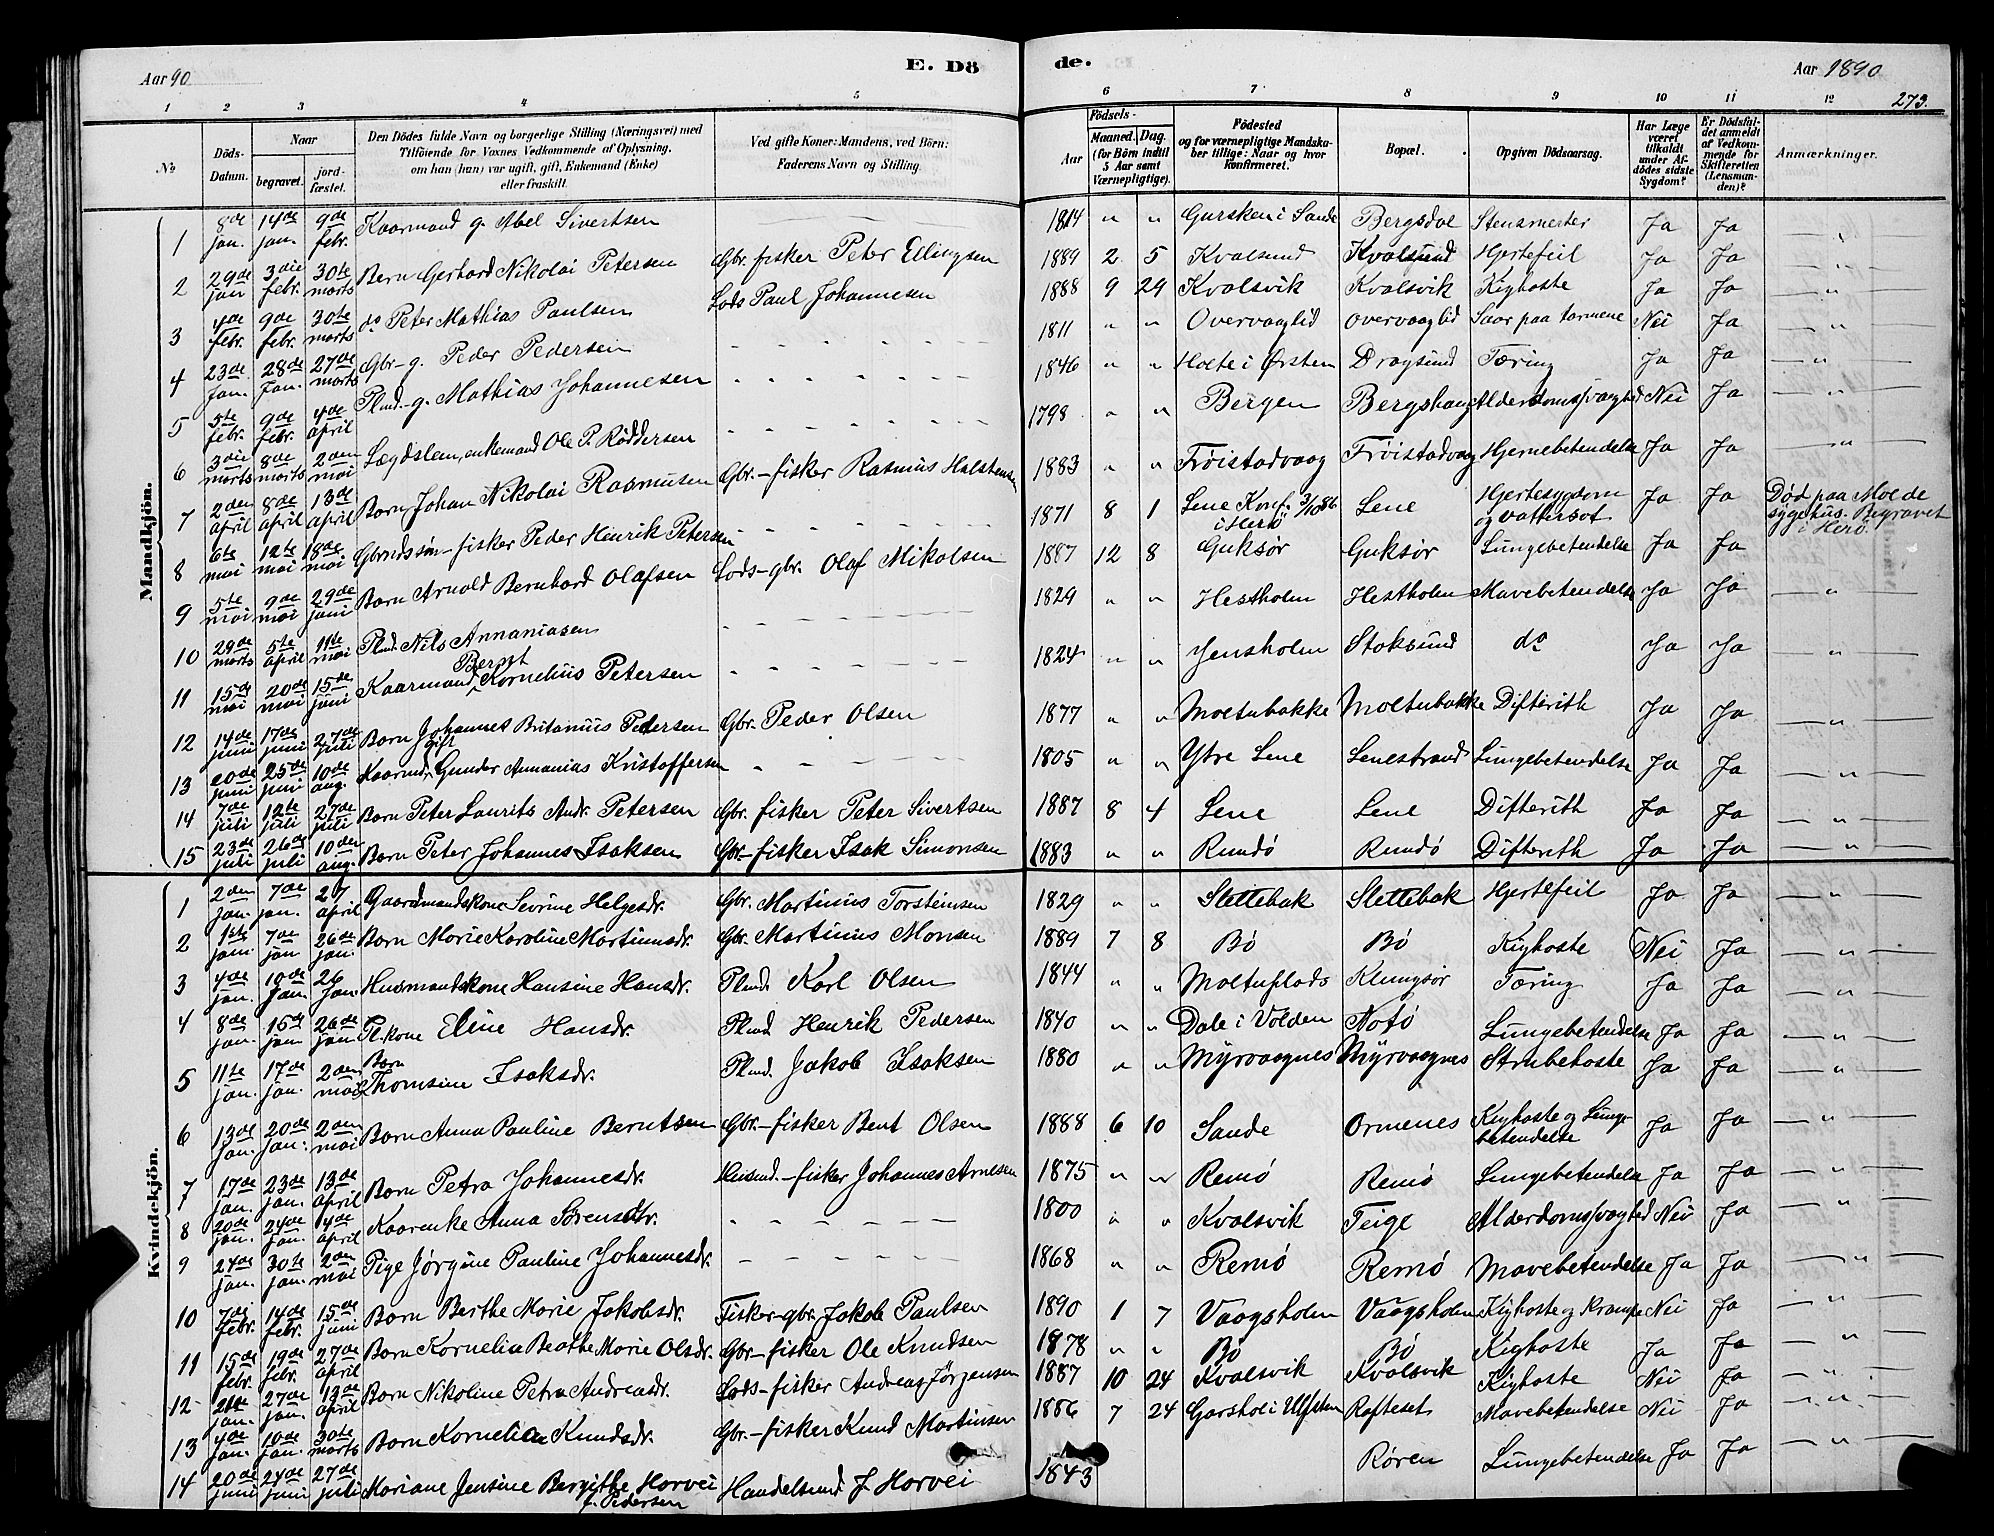 Aar 90
E. Dö
de.
Aar 1890
273.
1 2 3 4 5 6 7 8 9 10 11 12
No
Döds-Datum.
Naar
begravet.
jord-fæstet.
Den Dödes fulde Navn og borgerlige Stilling (Næringsvei) med
Tilföiende for Voxnes Vedkommende af Oplysning,
om han (hun) var ugift, gift, Enkemand (Enke)
eller fraskilt.
Ved gifte Koner: Mandens, ved Börn:
Faderens Navn og Stilling.
Födsels-
Aar
Maaned. Dag.
(for Börn indtil
5 Aar samt
Værnepligtige).
Födested
og for værnepligtige Mandska-
ber tillige: Naar og hvor
konfirmeret.
Bopæl.
Opgiven Dödsaarsag.
Har Læge
været
tilkaldt
under Af-
dödes sidste
Sygdom?
Er Dödsfal-
det anmeldt
af Vedkom-
mende for
Skifteretten
(Lensman-
den)?
Anmærkninger.
Mandkjön.
1 8de jan. 14de jan. 9de febr. Kaarmand g. Abel Sivertsen 1814 " " Gursken i Sande Bergsdal Stensmerter Ja Ja — " —
2 29de jan 3die febr. 30te marts Barn Gerhard Nikolai Petersen Gbr. fisker Peter Ellingsen 1889 2 5 Kvalsund Kvalsund Hjertefeil Ja Ja — " —
3 4de febr. 9de febr. 30te marts do Peter Mathias Paulsen Lods Paul Johannesen 1888 9 29 Kvalsvik Kvalsvik Kighoste Ja Ja — " —
4 23de Jan. 28de Jan. 27de marts Gbr. g. Peder Pedersen 1811 " " Overvaaglid Overvaaglid Saar paa tarmene Nei Ja — " —
5 5te febr. 9de febr. 4de april Plmd. g. Mathias Johannesen 1846 " " i Ørsten Dragsund Tæring Ja Ja — " —
6 3die marts 8de marts 2den mai Lægdslem, enkemand Ole P. Røddersen 1798 " " Bergen Bergshaug Alderdomssvaghed Nei Ja — " —
7 2den april 8de april 13de april Barn Johan Nikolai Rasmusen Gbr.-fisker Rasmus Halstensen 1883 " " Frøistadvaag Frøistadvaag Hjernebetendelse Ja Ja — " —
8 6te mai 12te mai 18de mai Gbrmdssøn-fisker Peder Henrik Petersen 1871 8 1 Lene Konf. 3/10 86 i Herø Lene Hjertesygdom og vattersot Ja Ja Død paa Molde sygehus. Begravet i Herø.
9 5te mai 9de mai 29de juni Barn Arnold Bernhard Olafsen Lods-gbr. Olaf Mikalsen 1887 12 8 Guksør Guksør Lungebetendelse Ja Ja
10 29de marts 5te april 11te mai Plmd Nils Annaniasen 1829 " " Hestholm Hestholm Mavebetendelse Ja Ja — " —
11 15de mai 20de mai 15de juni Kaarmand Bernt Kornelius Petersen 1824 " " Jensholm Stoksund do Ja Ja — " —
12 14de juni 17de juni 27de juli Barn Johannes Britanius Pedersen Gbr. Peder Olsen 1877 " " Moltubakke Moltubakke Difterith Ja Ja — " —
13 20de juni 25de juni 10de aug. Kaarmd. gift Gunder Annanias Kristoffersen 1805 " " Ytre Lene Lenestrand Lungebetendelse Ja Ja — " —
14 7de juli 12te juli 27de juli Barn Peter Laurits Andr. Petersen Gbr. fisker Peter Sivertsen 1887 8 4 Lene Lene Difterith Ja Ja — " —
15 23de juli 26de juli 10den aug. Barn Peter Johannes Isaksen Gbr-fisker Isak Simonsen 1883 " " Rundø Rundø Difterith Ja Ja — " —
Kvindekjön.
1 2den jan. 7de jan. 27 april Gaardmandskone Sevrine Helgesdr. Gbr. Martinus Torsteinsen 1829 " " Slettebak Slettebak Hjertefeil Ja Ja — " —
2 1ste jan 7de jan 26de jan. Barn Marie Karoline Martinusdr. Gbr. Martinus Monsen 1889 7 8 Bø Bø Kighoste Nei Ja — " —
3 4de jan. 10de Jan. 26 Jan. Husmandskone Hansine Hansdr. Plmd. Karl Olsen 1844 " " Moltuplads Klungsør Tæring Ja Ja — " —
4 8de jan. 15de jan 26de jan Pl.kone Eline Hansdr. Plmd Henrik Pedersen 1840 " " Dale i Volden Notø Lungebetendelse Ja Ja — " —
5 11te jan. 17de jan. 2den mai Barn Thomsine Isaksdr. Plmd. Jakob Isaksen 1880 " " Myrvaagnes Myrvaagnes Strubehoste Ja Ja — " —
6 13de jan. 20de jan. 2den mai Barn Anna Pauline Berntsen Gbr.-fisker Bent Olsen 1888 6 10 Sande Ormenes Kighoste og Lungebetendelse Ja Ja — " —
7 17de jan. 23de jan. 13de april Barn Petra Johannesdr. Husmd.-fisker Johannes Arnesen 1875 " " Remø Remø Lungebetendelse Ja Ja — " —
8 20de jan. 24de jan. 4de april Kaarenke Anna Sørensdtr. 1800 " " Kvalsvik Teige Alderdomssvaghed Nei Ja — " —
9 24de jan. 30te jan. 2den mai Pige Jørgine Pauline Johannesdr. 1868 " " Remø Remø Mavebetendelse Ja Ja — " —
10 7de febr. 14de febr. 15de juni Barn Berthe Marie Jakobsdr. Fisker-gbr. Jakob Paulsen 1890 1 7 Vaagsholm Vaagsholm Kighoste og Krampe Nei Ja — " —
11 15de febr. 19de febr. 27de april Barn Kornelia Beathe Marie Olsdr. Gbr-fisker Ole Knudsen 1878 " " Bø Bø Kighoste Ja Ja — " —
12 21te jan. 27de jan. 13de april Barn Nikoline Petra Andreasdr. Lods-fisker Andreas Jørgensen 1887 10 24 Kvalsvik Kvalsvik Kighoste Nei Ja — " —
13 4de jan. 10de jan. 30te marts Barn Kornelia Knudsdr. Gbr.-fisker Knud Martinsen 1886 7 24 Garshol i Ulfsten Rafteset Mavebetendelse Nei Ja — " —
14 20de juni 24de juni 27de juli Mariane Jensine Bergithe Horvei f. Pedersen Handelsmd J. Horvei 1843 Røren Lungebetendelse Ja Ja — " —